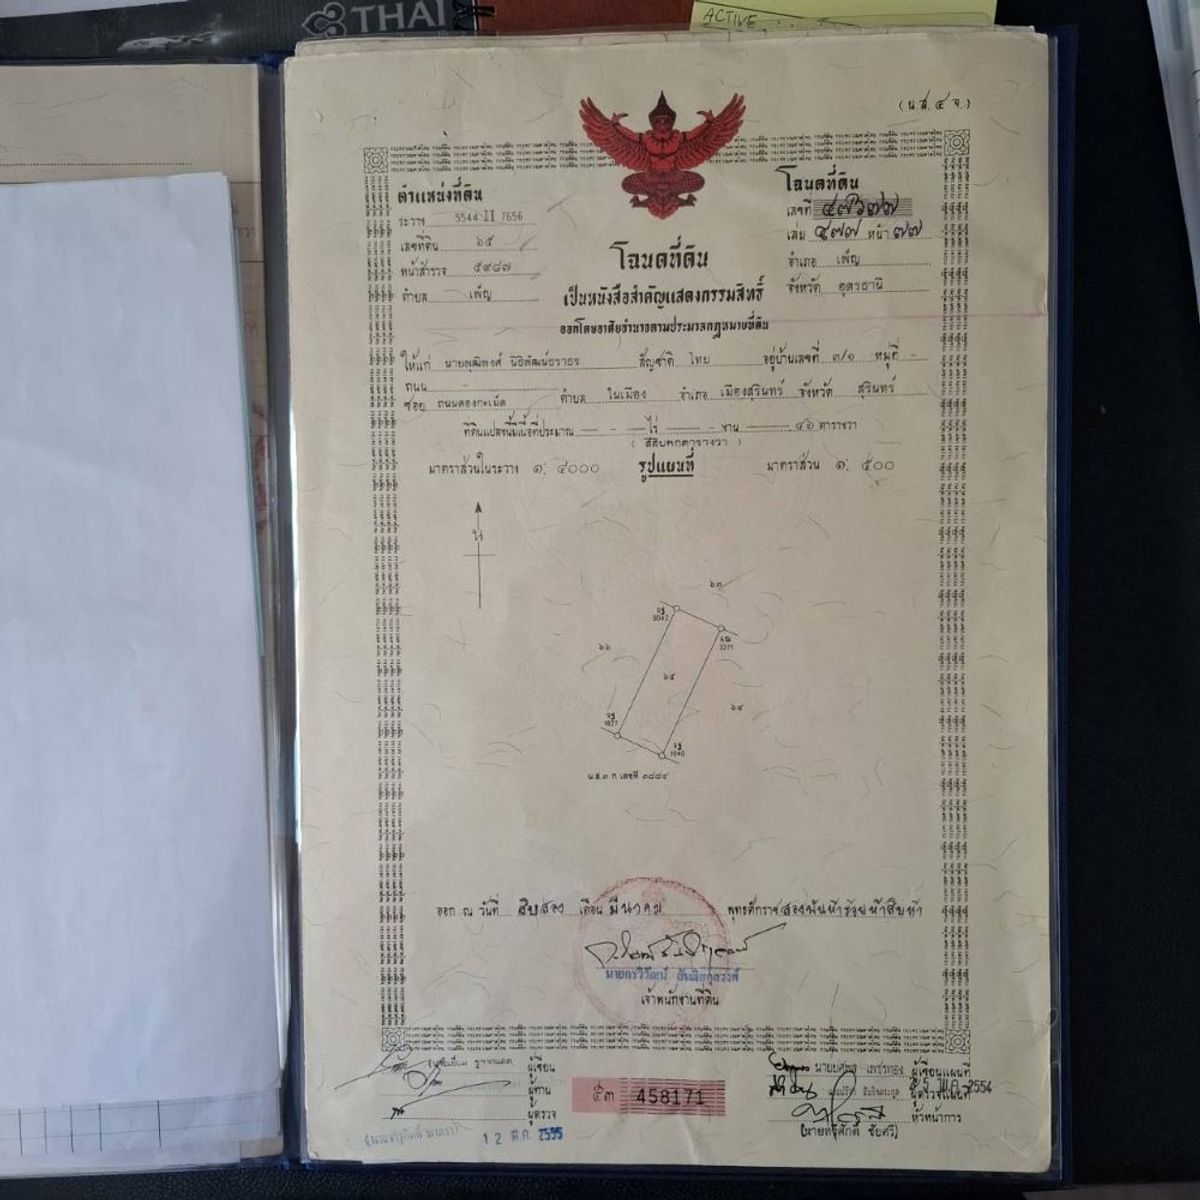 THAI
ACTIVE
(น.ส. ๔ จ.)
ตำแหน่งที่ดิน
ระวาง 5544 II 7656
เลขที่ดิน ๖๕
หน้าสำรวจ ๕๙๘๗
ตำบล เพ็ญ
โฉนดที่ดิน
เลขที่ ๔๗๖๗๗
เล่ม ๔๗๗ หน้า ๗๗
อำเภอ เพ็ญ
จังหวัด อุดรธานี
โฉนดที่ดิน
เป็นหนังสือสำคัญแสดงกรรมสิทธิ์
ออกโดยอาศัยอำนาจตามประมวลกฎหมายที่ดิน
ให้แก่ นายพุฒิพงศ์ นิธิพัฒน์ธราธร สัญชาติ ไทย อยู่บ้านเลขที่ ๓/๑ หมู่ที่ -
ถนน -
ซอย ถนนดองกะเม็ด ตำบล ในเมือง อำเภอ เมืองสุรินทร์ จังหวัด สุรินทร์
ที่ดินแปลงนี้มีเนื้อที่ประมาณ - ไร่ - งาน ๔๖ ตารางวา
( สี่สิบหกตารางวา )
มาตราส่วนในระวาง ๑: ๔๐๐๐ รูปแผนที่ มาตราส่วน ๑: ๕๐๐
๖๓
๖๖
๖๕
๖๔
น.ส.๓ ก เลขที่ ๓๘๘๔
ออก ณ วันที่ สิบสอง เดือน มีนาคม พุทธศักราช สองพันห้าร้อยห้าสิบห้า
เจ้าพนักงานที่ดิน
ผู้เขียน
ผู้ทาน
ผู้ตรวจ
12 มี.ค. 2555
๕๓ 458171
ผู้เขียนแผนที่
ผู้ตรวจแผนที่
2554
หัวหน้าการ